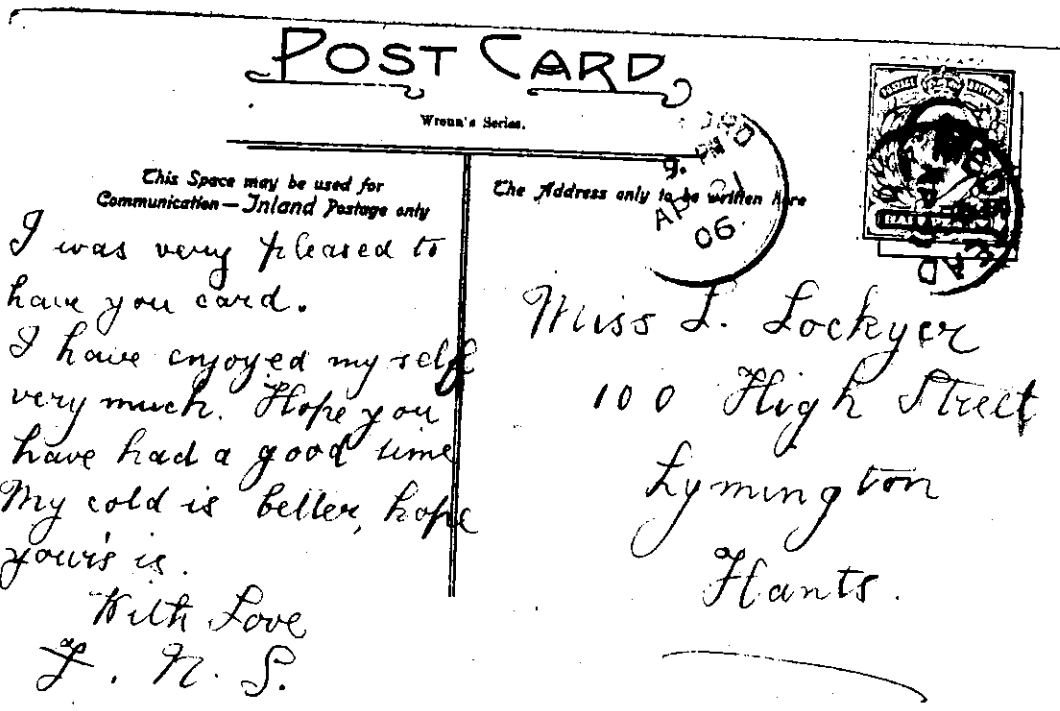 POST CARD
Wrenn's Series.
This Space may be used for
Communication — Inland Postage only
The Address only to be written here
9. PM
AP 21
06
I was very pleased to
have you card.
I have enjoyed my self
very much. Hope you
have had a good time
My cold is better, hope
your's is.
With Love
F. N. S.
Miss L. Lockyer
100 High Street
Lymington
Hants.